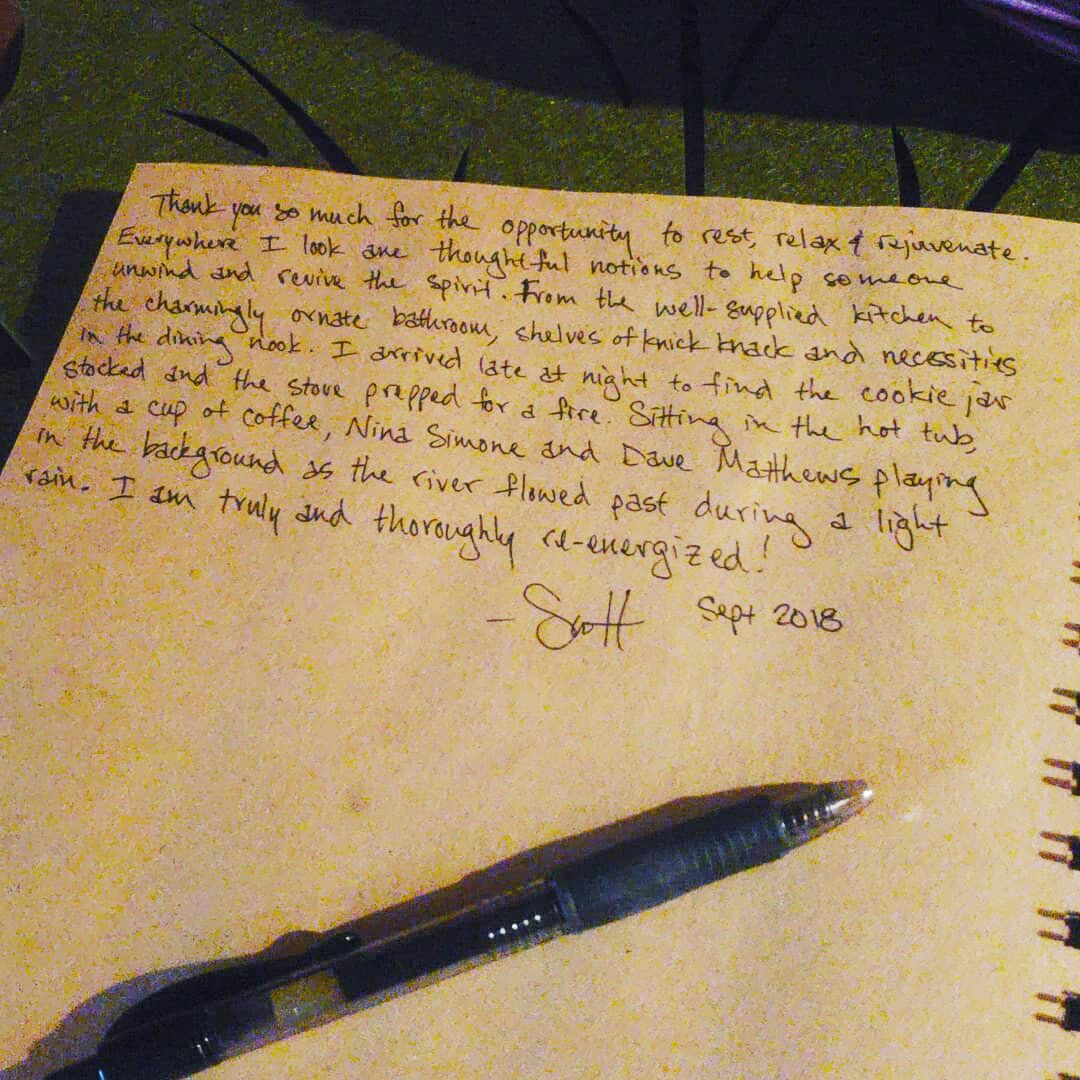 Thank you so much for the opportunity to rest, relax & rejuvenate.
Everywhere I look are thoughtful notions to help someone
unwind and revive the spirit. From the well-supplied kitchen to
the charmingly ornate bathroom, shelves of knick knack and necessities
in the dining nook. I arrived late at night to find the cookie jar
stocked and the stove prepped for a fire. Sitting in the hot tub,
with a cup of coffee, Nina Simone and Dave Matthews playing
in the background as the river flowed past during a light
rain. I am truly and thoroughly re-energized!
- Scott Sept 2018